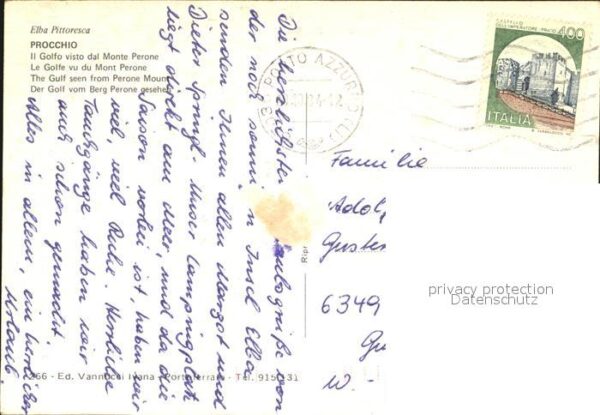 Elba Pittoresca
PROCCHIO
Il Golfo visto dal Monte Perone
Le Golfe vu du Mont Perone
The Gulf seen from Perone Mount
Der Golf vom Berg Perone gesehen
400
ITALIA
PORTO AZZURRO (LI)
Die herrlichsten Urlaubsgrüße von
der noch sonnigen Insel Elba
senden Ihnen allen Margot und
Dieter Springl. Unser Campingplatz
liegt direkt am Meer, und da die
Saison vorbei ist, haben wir
viel, viel Ruhe. Herrliche
Tauchgänge haben wir
auch schon gemacht.
Alles in allem, ein herrlicher
Urlaub.
Familie
Adol
Guste
6349
W.-
privacy protection
Datenschutz
266 - Ed. Vannucci Ivana - Portoferraio - Tel. 915131